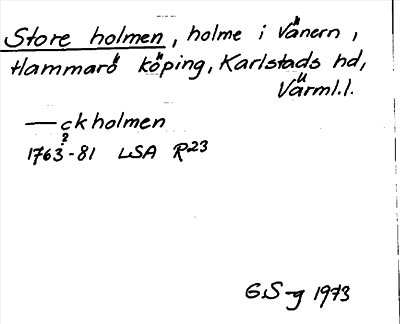 Store holmen, holme i Vänern,
Hammarö köping, Karlstads hd,
Värml.l.
—ckholmen
?
1763-81 LSA R23
G.S-g 1973